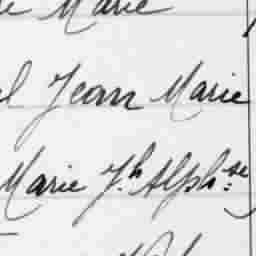 Marie
Jean Marie
Marie Jh Alphse